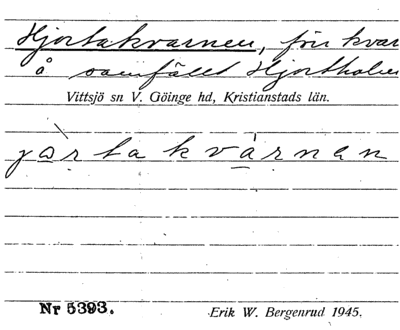 Hjortakvarnen, förr kvar
å samfällt Hjortholm
Vittsjö sn V. Göinge hd, Kristianstads län.
jàrtakvárnan
Nr 5393.
Erik W. Bergenrud 1945.